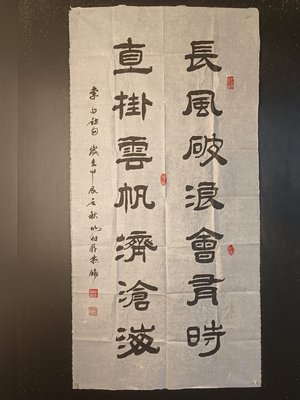 長風破浪會有時
直掛雲帆濟滄海
李白詩句 歲在甲辰